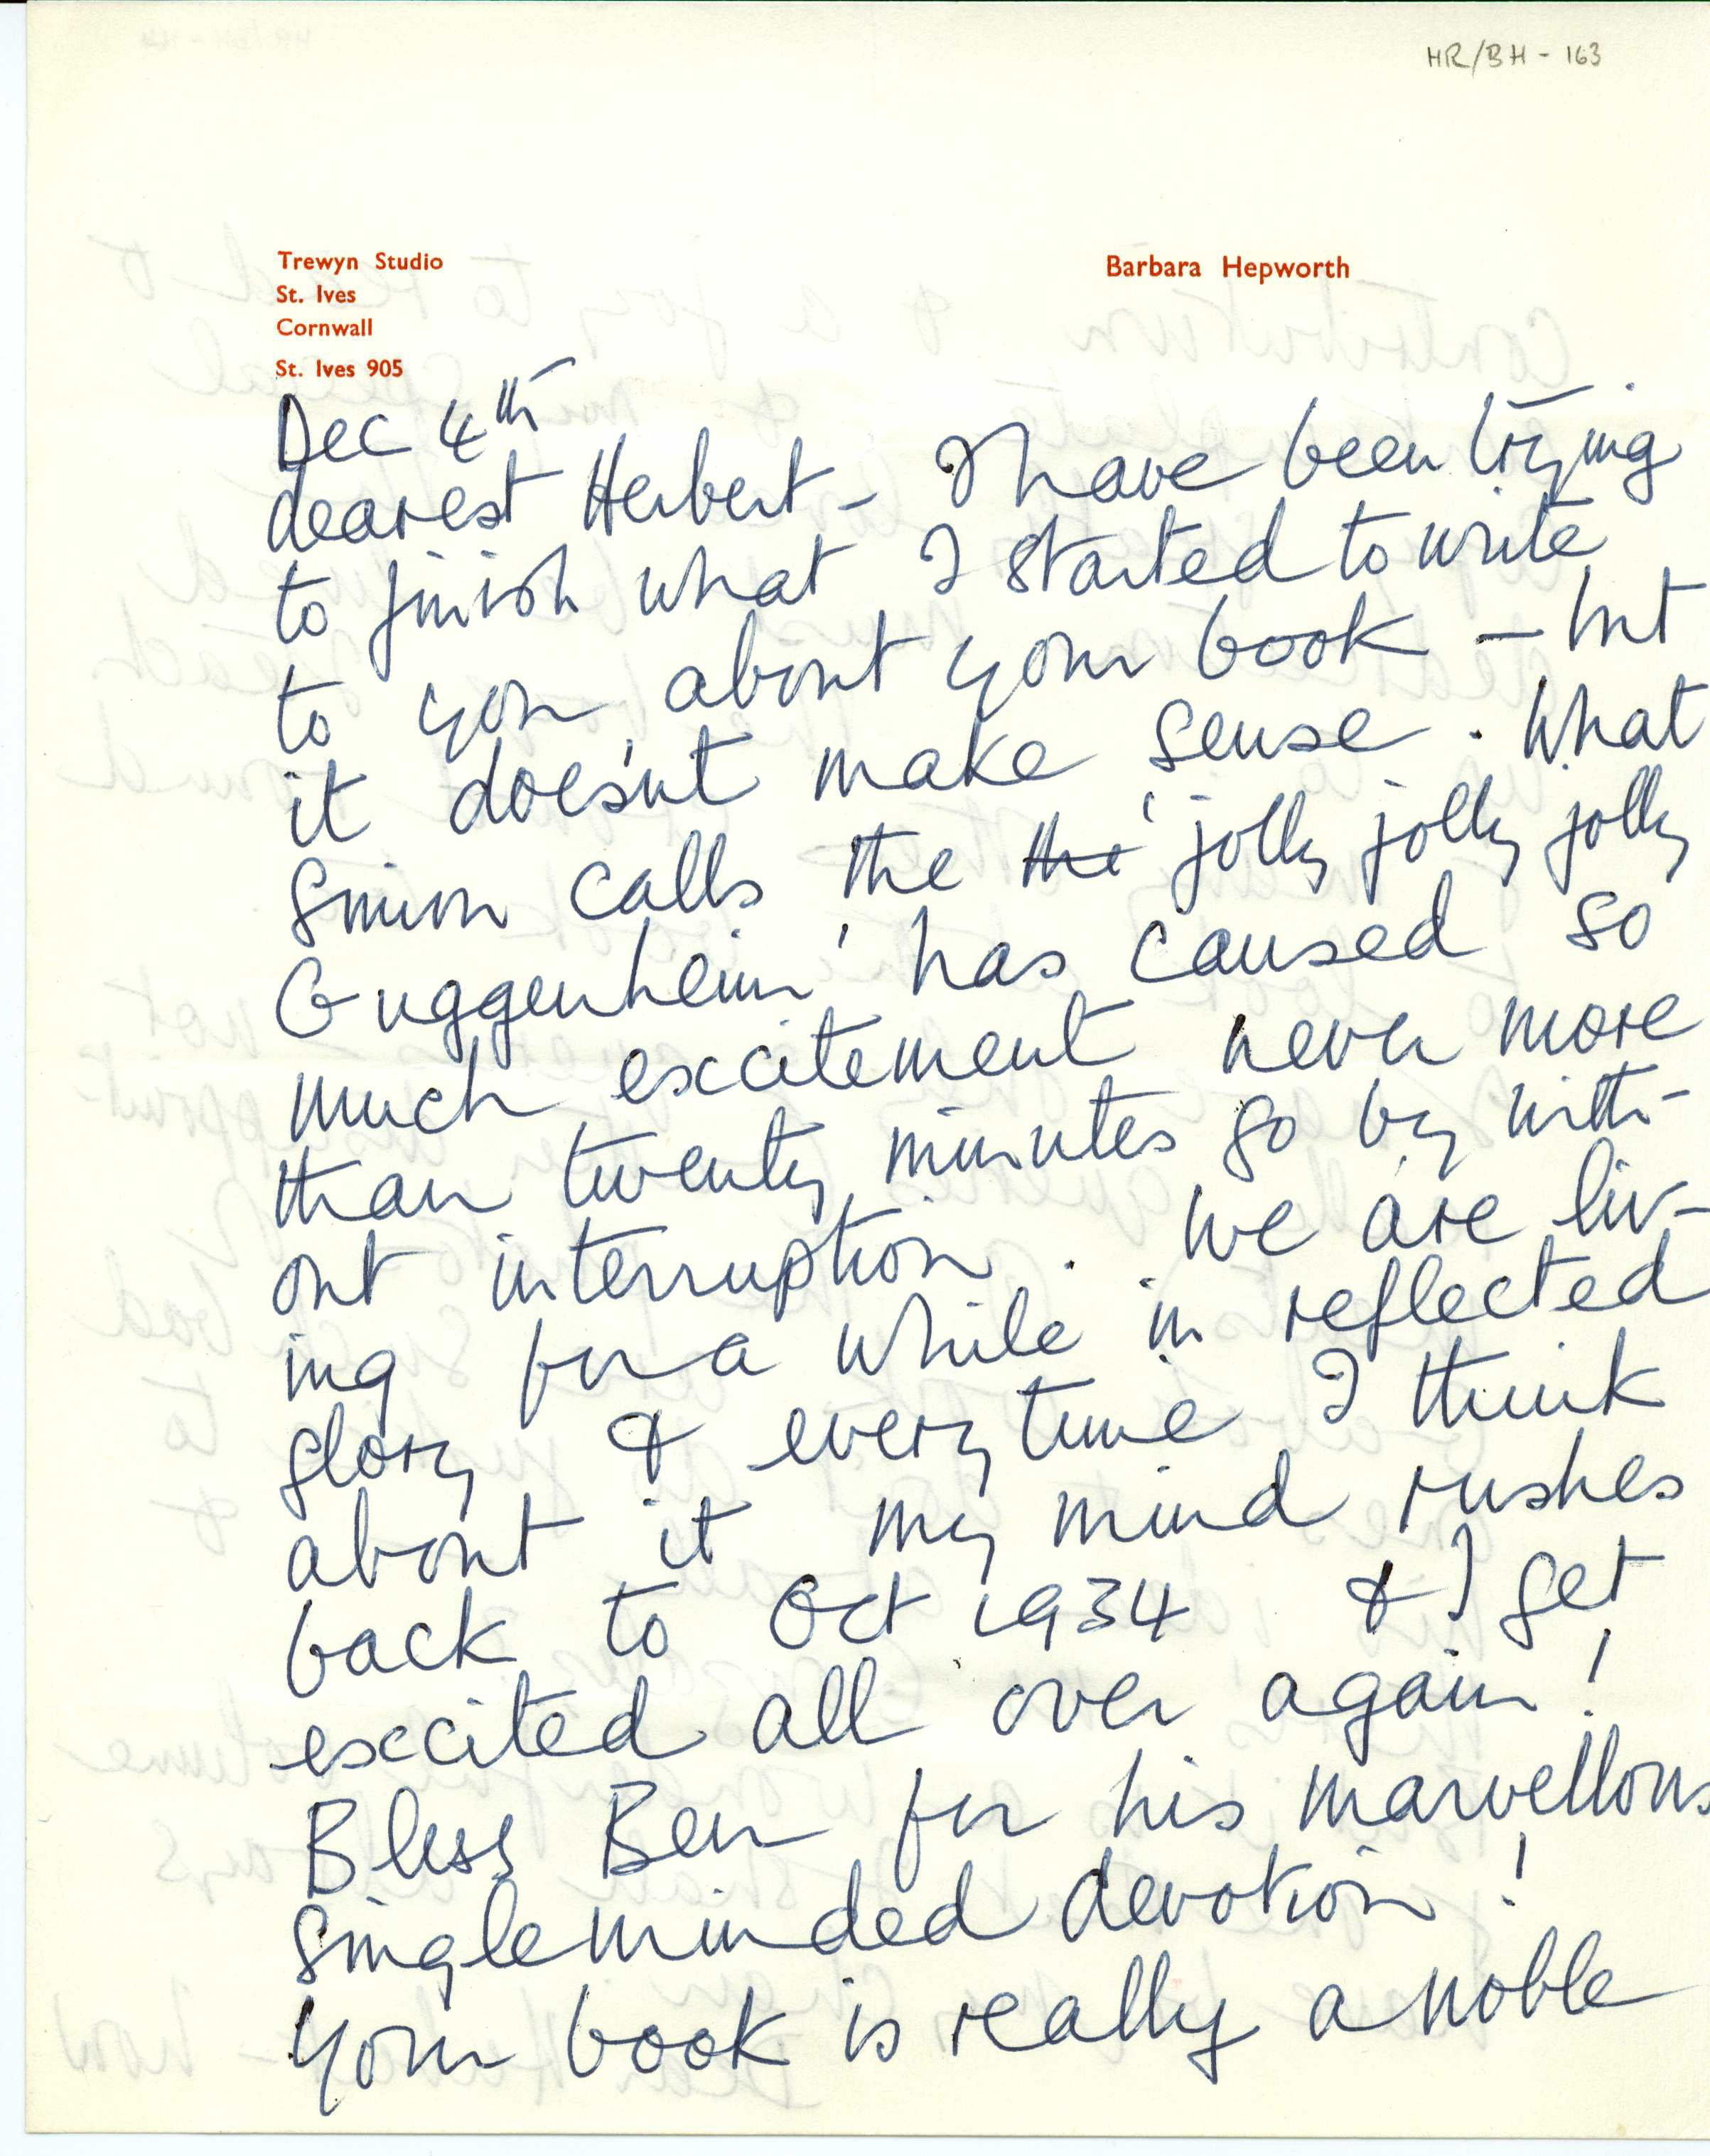 HR/BH - 163
Trewyn Studio
St. Ives
Cornwall
St. Ives 905
Barbara Hepworth
Dec 4th
dearest Herbert - I have been trying
to finish what I started to write
to you about your book - but
it does'nt make sense. What
Simon calls the the 'jolly jolly jolly
Guggenheim' has caused so
much excitement never more
than twenty minutes go by with-
out interruption. We are liv-
ing for a while in reflected
glory & every time I think
about it my mind rushes
back to Oct 1934 & I get
excited all over again!
Bless Ben for his marvellous
singleminded devotion!
Your book is really a noble